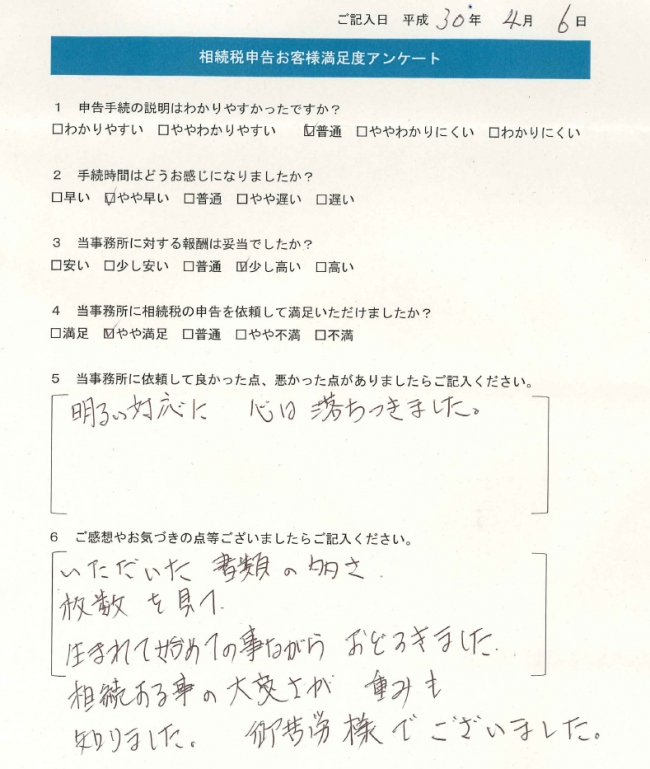 ご記入日 平成 30 年 4 月 6 日
相続税申告お客様満足度アンケート
1 申告手続の説明はわかりやすかったですか？
□わかりやすい □ややわかりやすい ☑普通 □ややわかりにくい □わかりにくい
2 手続時間はどうお感じになりましたか？
□早い ☑やや早い □普通 □やや遅い □遅い
3 当事務所に対する報酬は妥当でしたか？
□安い □少し安い □普通 ☑少し高い □高い
4 当事務所に相続税の申告を依頼して満足いただけましたか？
□満足 ☑やや満足 □普通 □やや不満 □不満
5 当事務所に依頼して良かった点、悪かった点がありましたらご記入ください。
明るい対応に 心は落ちつきました。
6 ご感想やお気づきの点等ございましたらご記入ください。
いただいた 書類の多さ
枚数を見て
生まれて始めての事ながら おどろきました
相続ある事の大変さが 重みも
知りました。 御苦労様でございました。